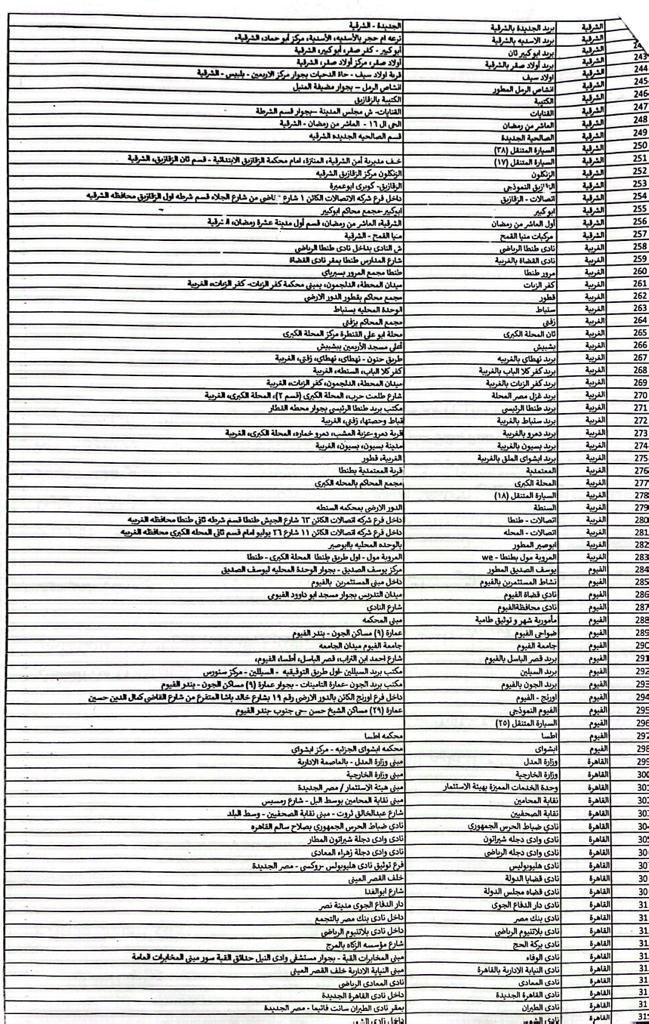 الشرقية بريد الجديدة بالشرقية الجديدة - الشرقية
24 الشرقية بريد الاسديه بالشرقية ترعه ام حجر بالأسديه، الأسدية، مركز أبو حماد، الشرقية،
243 الشرقية بريد ابو كبير ثان أبو كبير - كفر صقر، أبو كبير، الشرقية
244 الشرقية بريد أولاد صقر بالشرقية أولاد صقر، مركز أولاد صقر، الشرقية
245 الشرقية اولاد سيف قرية اولاد سيف - حالة الدحيات بجوار مركز الاربعين - بلبيس - الشرقية
246 الشرقية انشاص الرمل المطور انشاص الرمل - بجوار مضيفة المنيل
247 الشرقية الكتيبة الكتيبة بالزقازيق
248 الشرقية القنايات القنايات- ش مجلس المدينة -بجوار قسم الشرطة
249 الشرقية العاشر من رمضان الحى ال ١٦ - العاشر من رمضان - الشرقية
الشرقية الصالحية الجديدة قسم الصالحيه الجديده الشرقيه
250 الشرقية السيارة المتنقل (٣٨)
251 الشرقية السيارة المتنقل (١٧) خلف مديرية أمن الشرقية، المنتزة، امام محكمة الزقازيق الابتدائية - قسم ثان الزقازيق، الشرقية
252 الشرقية الزنكلون الزنكلون مركز الزقازيق الشرقيه
253 الشرقية الزقازيق النموذجي الزقازيق- كوبرى ابوعميرة
254 الشرقية اتصالات - الزقازيق داخل فرع شركه الاتصالات الكائن ١ شارع ناضى من شارع الجلاء قسم شرطه اول الزقازيق محافظه الشرقيه
255 الشرقية ابو كبير ابوكبير -مجمع محاكم ابوكبير
256 الشرقية أول العاشر من رمضان الشرقية، العاشر من رمضان، قسم أول مدينة عشرة رمضان، الشرقية
257 الشرقية مركبات منيا القمح منيا القمح - الشرقية
258 الغربية نادى طنطا الرياضي ش النادى بداخل نادى طنطا الرياضى
259 الغربية نادى القضاة بالغربية شارع المدارس طنطا بمقر نادى القضاة
260 الغربية مرور طنطا طنطا مجمع المرور بسبرباى
261 الغربية كفر الزيات ميدان المحطة، الدلجمون، بمبنى محكمة كفر الزيات- كفر الزيات، الغربية
262 الغربية قطور مجمع محاكم بقطور الدور الارضي
263 الغربية سنباط الوحدة المحليه بسنباط
264 الغربية زفتى مجمع المحاكم بزفتى
265 الغربية ثان المحلة الكبرى محلة ابو على القنطرة مركز المحلة الكبرى
266 الغربية بشبيش أعلى مسجد الأربعين ببشبيش
267 الغربية بريد نهطاى بالغربيه طريق حنون - نهطاى، نهطاى، زفتى، الغربية
268 الغربية بريد كفر كلا الباب بالغربية كفر كلا الباب، السنطه، الغربية
269 الغربية بريد كفر الزيات بالغربية ميدان المحطة، الدلجمون، كفر الزيات، الغربية
270 الغربية بريد غزل مصر المحلة شارع طلعت حرب، المحلة الكبرى (قسم ٢)، المحلة الكبرى، الغربية
271 الغربية بريد طنطا الرئيسى مكتب بريد طنطا الرئيسى بجوار محطه القطار
272 الغربية بريد سنباط بالغربية قباط وحصتها، زفتي، الغربية
273 الغربية بريد دمرو بالغربية قرية دمرو عزبة العشب، دمرو خماره، المحلة الكبرى، الغربية
274 الغربية بريد بسيون بالغربية مدينة بسيون، بسيون، الغربية
275 الغربية بريد ابشواى الملق بالغربية الغربية، قطور
276 الغربية المعتمدية قرية المعتمدية بطنطا
277 الغربية المحلة الكبرى مجمع المحاكم بالمحله الكبرى
278 الغربية السيارة المتنقل (١٨)
279 الغربية السنطة الدور الارضى بمحكمه السنطه
280 الغربية اتصالات - طنطا داخل فرع شركه اتصالات الكائن ٦٣ شارع الجيش طنطا قسم شرطه ثانى طنطا محافظه الغربيه
281 الغربية اتصالات - المحله داخل فرع شركه اتصالات الكائن ١١ شارع ٢٦ يوليو امام قسم ثانى المحله الكبرى محافظه الغربيه
282 الغربية ابوصير المطور بالوحده المحليه بالبوصير
283 الغربية العروبة مول بطنطا - we العروبة مول - اول طريق طنطا المحلة الكبرى - طنطا
284 الفيوم يوسف الصديق المطور مركز يوسف الصديق - بجوار الوحدة المحليه ليوسف الصديق
285 الفيوم نشاط المستثمرين بالفيوم داخل مبنى المستثمرين بالفيوم
286 الفيوم نادى قضاة الفيوم ميدان التدريس بجوار مسجد ابو داوود الفيومى
287 الفيوم نادى محافظةالفيوم شارع النادي
288 الفيوم مأمورية شهر و توثيق طامية مبنى المحكمه
289 الفيوم ضواحى الفيوم عمارة (٩) مساكن الجون - بندر الفيوم
290 الفيوم جامعة الفيوم جامعة الفيوم ميدان الجامعه
291 الفيوم بريد قصر الباسل بالفيوم شارع احمد ابن التراب، قصر الباسل، أطسا، الفيوم،
292 الفيوم بريد السيلين مكتب بريد السيلين -اول طريق التوفيقيه - السيلين - مركز سنورس
293 الفيوم بريد الجون بالفيوم مكتب بريد الجون -عمارة التامينات - بجوار عمارة (٩) مساكن الجون - بندر الفيوم
294 الفيوم اورنج - الفيوم داخل فرع اورنج الكائن بالدور الارضى رقم ١٩ بشارع خالد باشا المتفرع من شارع القاضى كمال الدين حسين
295 الفيوم الفيوم النموذجى عمارة (٢٩) مساكن الشيخ حسن -حى جنوب -بندر الفيوم
296 الفيوم السيارة المتنقل (٢٥)
297 الفيوم اطسا محكمه اطسا
298 الفيوم ابشواى محكمه ابشواى الجزئيه - مركز ابشواى
299 القاهرة وزارة العدل مبنى وزارة العدل - بالعاصمة الادارية
300 القاهرة وزارة الخارجية مبنى وزارة الخارجية
301 القاهرة وحدة الخدمات المميزة بهيئة الاستثمار مبنى هيئة الاستثمار / مصر الجديدة
302 القاهرة نقابة المحامين مبنى نقابة المحامين بوسط البل - شارع رمسيس
303 القاهرة نقابة الصحفيين شارع عبدالخالق ثروت - مبنى نقابة الصحفيين - وسط البلد
304 القاهرة نادى ضباط الحرس الجمهوري نادى ضباط الحرس الجمهوري بصلاح سالم القاهره
305 القاهرة نادى وادى دجله شيراتون نادى وادى دجلة شيراتون المطار
30 القاهرة نادى وادى دجلة الرياضى نادى وادى دجلة زهراء المعادى
30 القاهرة نادى هليوبوليس فرع توثيق نادى هليوبولس -روكسى - مصر الجديدة
30 القاهرة نادى قضايا الدولة خلف القصر العينى
30 القاهرة نادى قضاه مجلس الدولة شارع ابوالفدا
31 القاهرة نادى دار الدفاع الجوى دار الدفاع الجوى مدينة نصر
31 القاهرة نادى بنك مصر داخل نادى بنك مصر بالتجمع
31 القاهرة نادى بلاتنيوم الرياضى داخل نادى بلاتنيوم الرياضى
31 القاهرة نادى بركة الحج شارع مؤسسه الزكاه بالمرج
31 القاهرة نادى الوفاء مبنى المخابرات القبة - بجوار مستشفى وادى النيل حدائق القبة سور مبنى المخابرات العامة
31 القاهرة نادى النيابة الادارية بالقاهرة مبنى النيابة الادارية خلف القصر العينى
31 القاهرة نادى المعادى نادى المعادى الرياضى
31 القاهرة نادى القاهرة الجديدة داخل نادى القاهرة الجديدة
31 القاهرة نادى الطيران بمقر نادى الطيران سانت فاتيما - مصر الجديدة
31 القاهرة داخل نادى